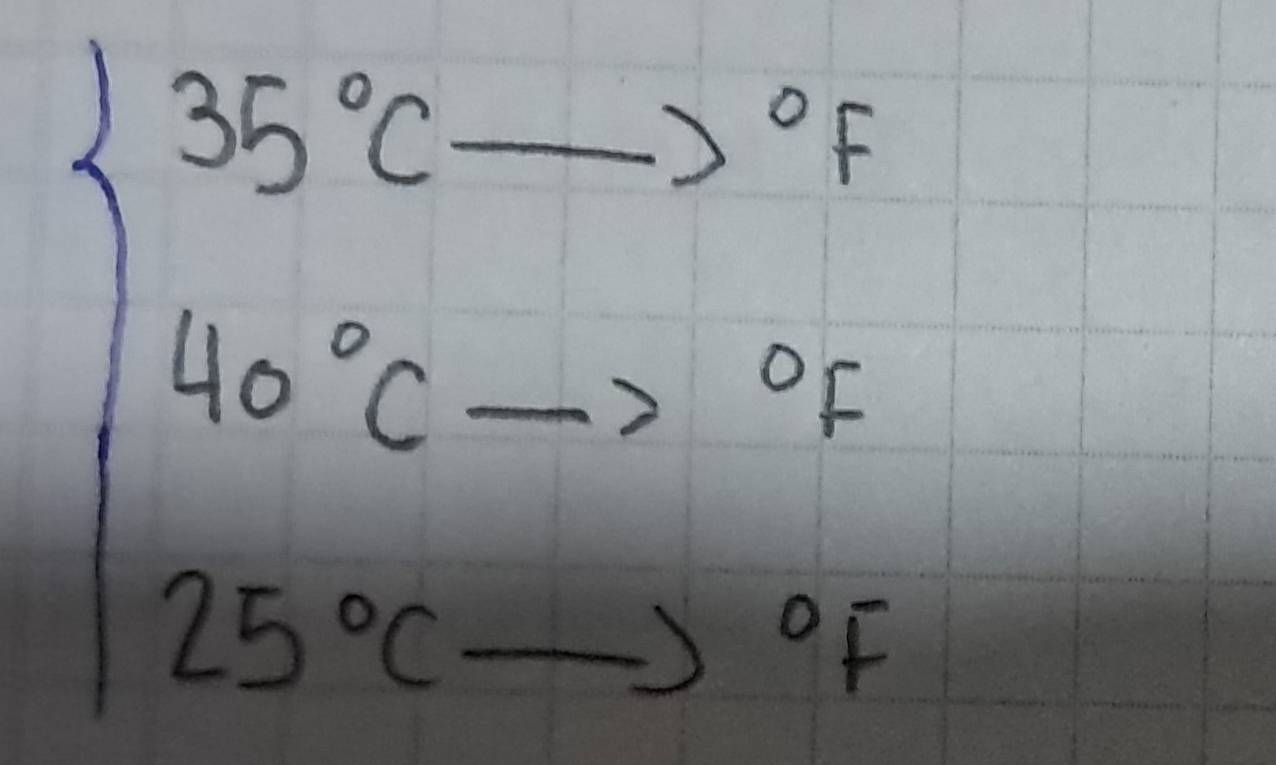 35 °C → °F
40 °C → °F
25 °C → °F